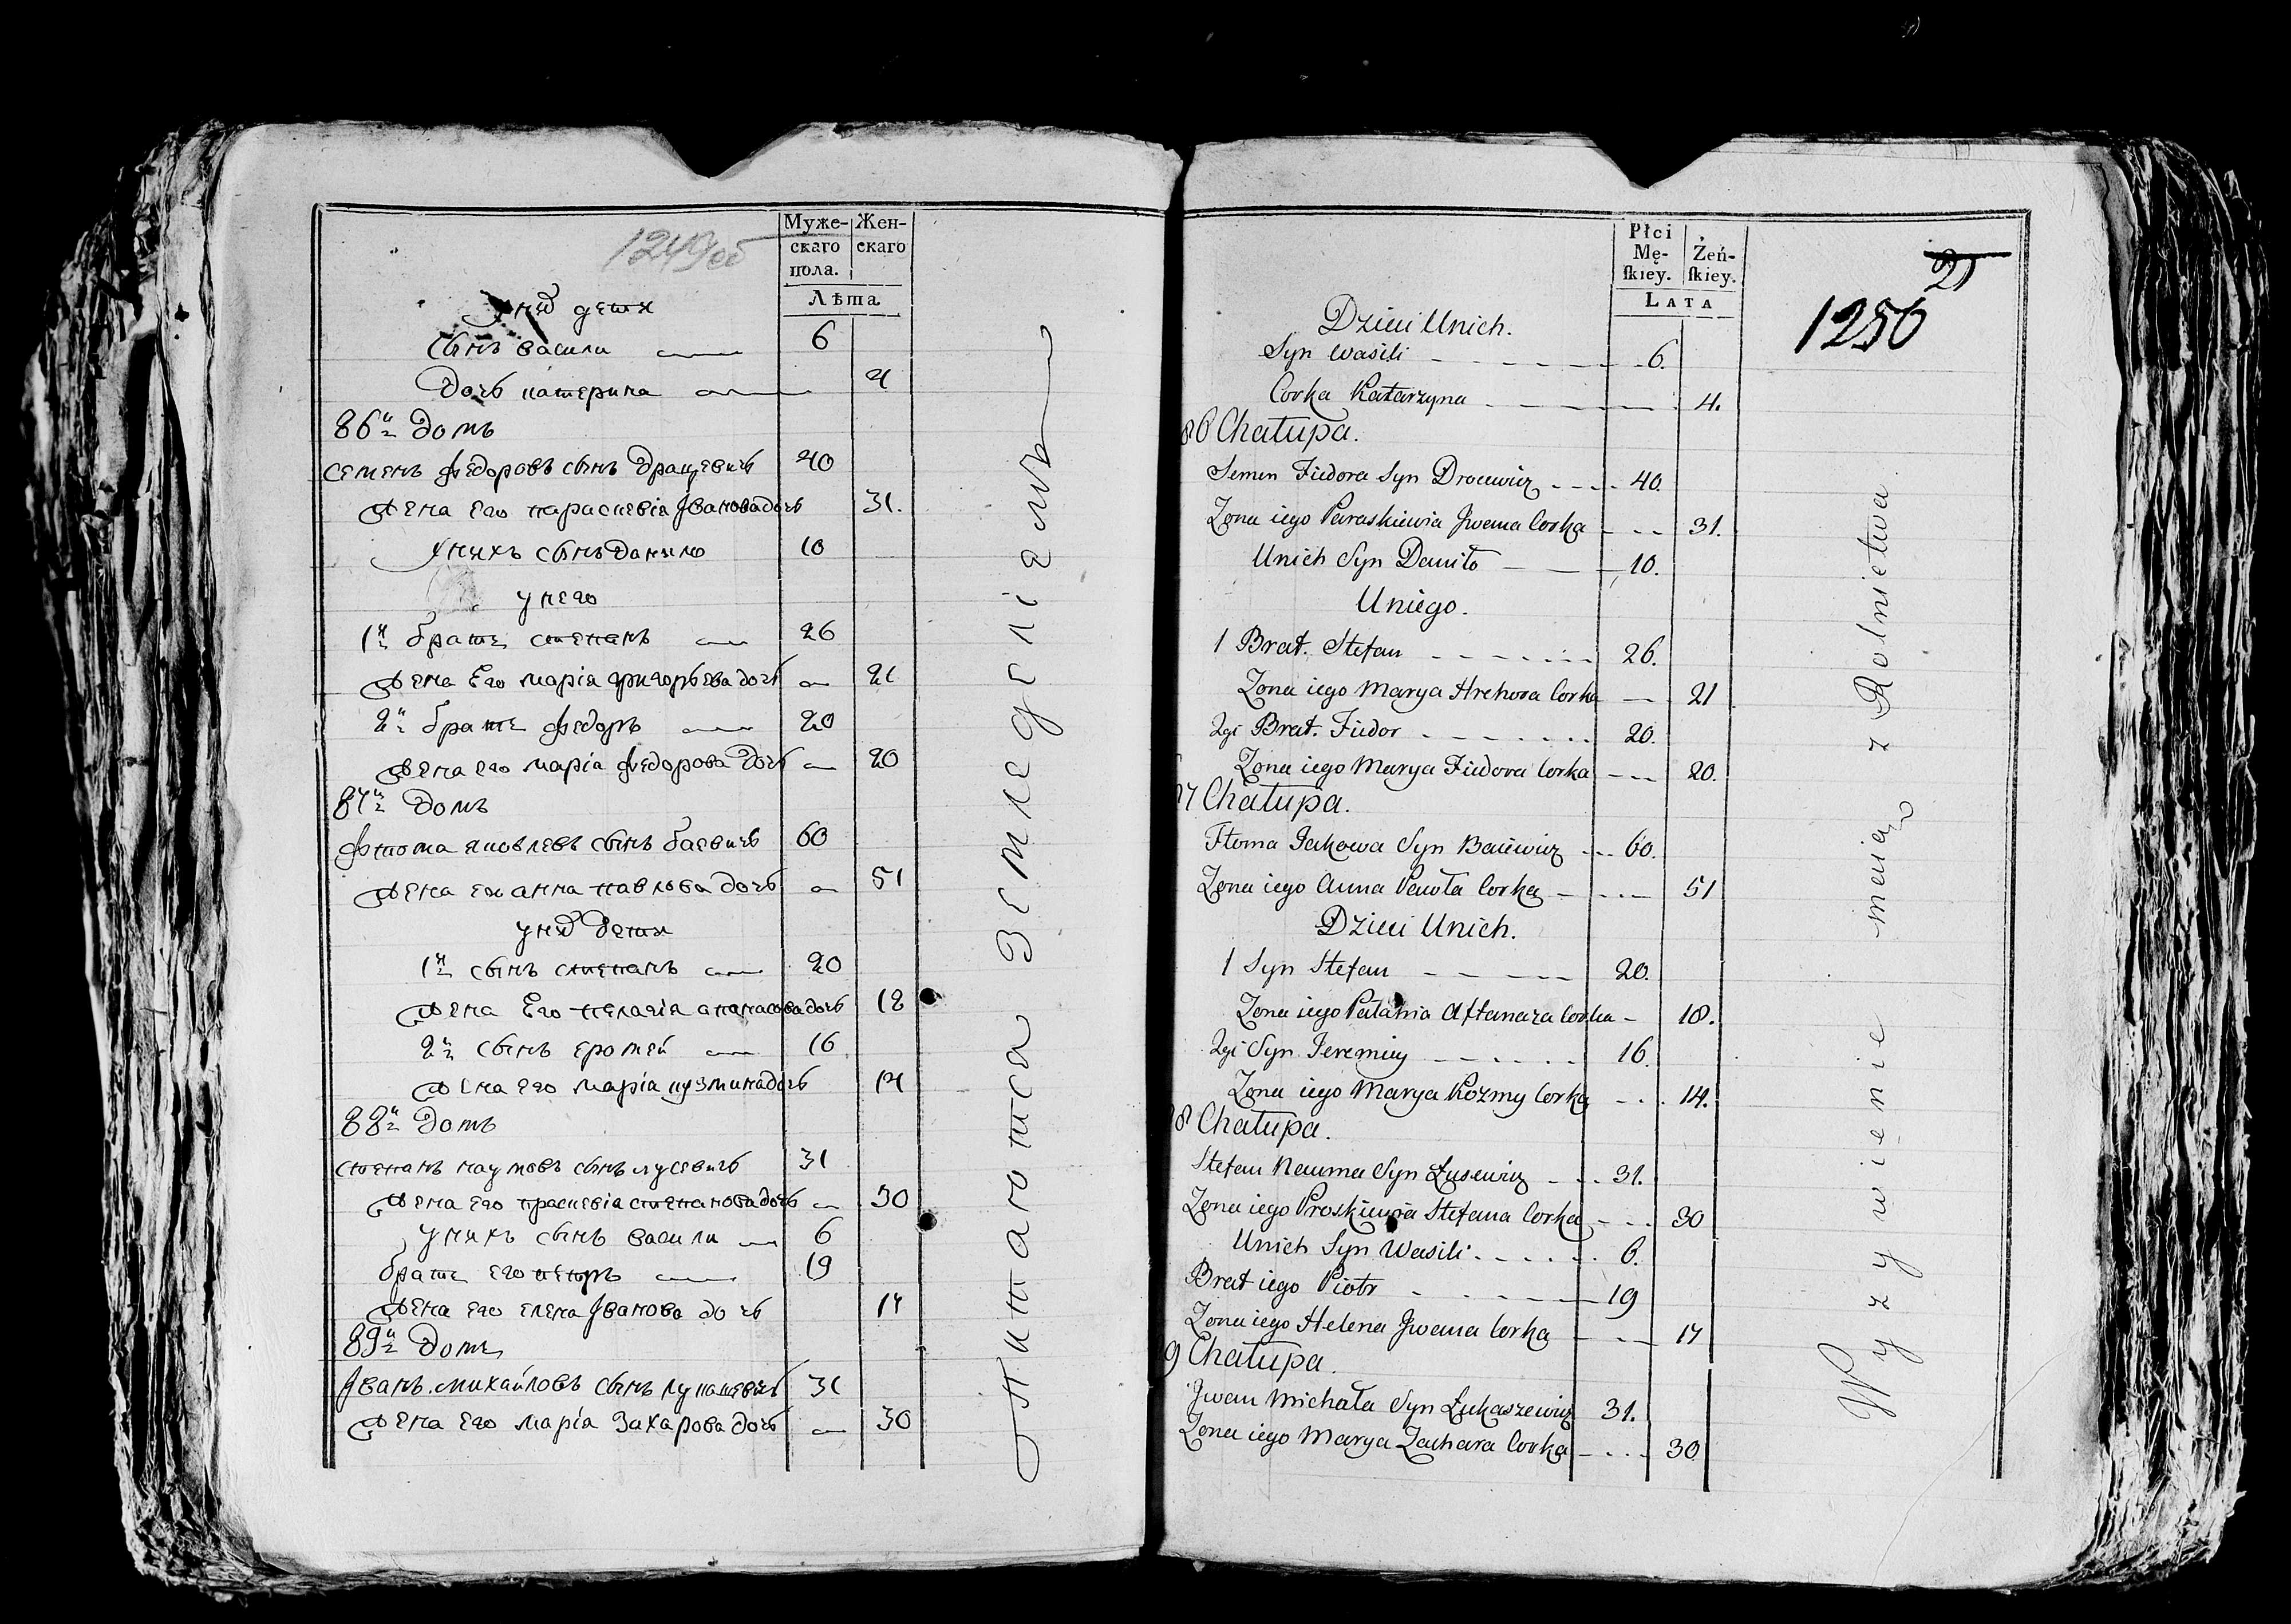 1249об
Муже-
скаго
пола.
Жен-
скаго
Лѣта
У нихъ дети
Сынъ васили 6
Дочь катерина 4
86й Домъ
семенъ федоровъ сынъ Драцевичь 40
жена его параскевiя Iванова дочь 31.
У нихъ сынъ данило 10
у него
1й братъ степанъ 26
жена Его марiя григорьева дочь 21
2й братъ федоръ 20
жена его марiа федорова дочь 20
87й Домъ
фтома яковлевъ сынъ баевичь 60
жена ево анна павлова дочь 51
у нихъ дети
1й сынъ степанъ 20
жена Его пелагiя апанасова дочь 18
2й сынъ еромей 16
жена его марiа кузмина дочь 14
88й Домъ
степанъ наумовъ сынъ лусевичь 31
жена Его праскевiя степанова дочь 30
у нихъ сынъ васили 6
братъ его петръ 19
жена его елена Iванова дочь 17
89й Домъ
Iванъ михайловъ сынъ лукашевичь 31
жена Его марiа Захарова дочь 30
Питаются Земледелiемъ
Płci
Mę-
ſkiey.
Żeń-
ſkiey.
LATA
21
1250
Dzieci Unich.
Syn Wasili 6.
Corka Katarzyna 4.
86 Chałupa.
Semen Fiedora Syn Drocewicz 40.
Zona iego Paraskiewia Jwana Corka 31.
Unich Syn Daniło 10.
Uniego.
1 Brat. Stefan 26.
Zona iego Marya Hrehora Corka 21
2gi Brat. Fiedor 20.
Zona iego Marya Fiedora Corka 20.
7 Chałupa.
Ftoma Jakowa Syn Baiewicz 60.
Zona iego Anna Pawła Corka 51
Dzieci Unich.
1 Syn Stefan 20.
Zona iego Palahia Aftanaza Corka 18.
2gi Syn Jeremiy 16.
Zona iego Marya Kozmy Corka 14.
8 Chałupa.
Stefan Nauma Syn Łusewicz 31.
Zona iego Proskiewia Stefana Corka 30
Unich Syn Wasili 6.
Brat iego Piotr 19
Zona iego Helena Jwana Corka 17
9 Chałupa.
Jwan Michała Syn Łukaszewicz 31.
Zona iego Marya Zachara Corka 30
Wyzywienie maią z Rolnictwa